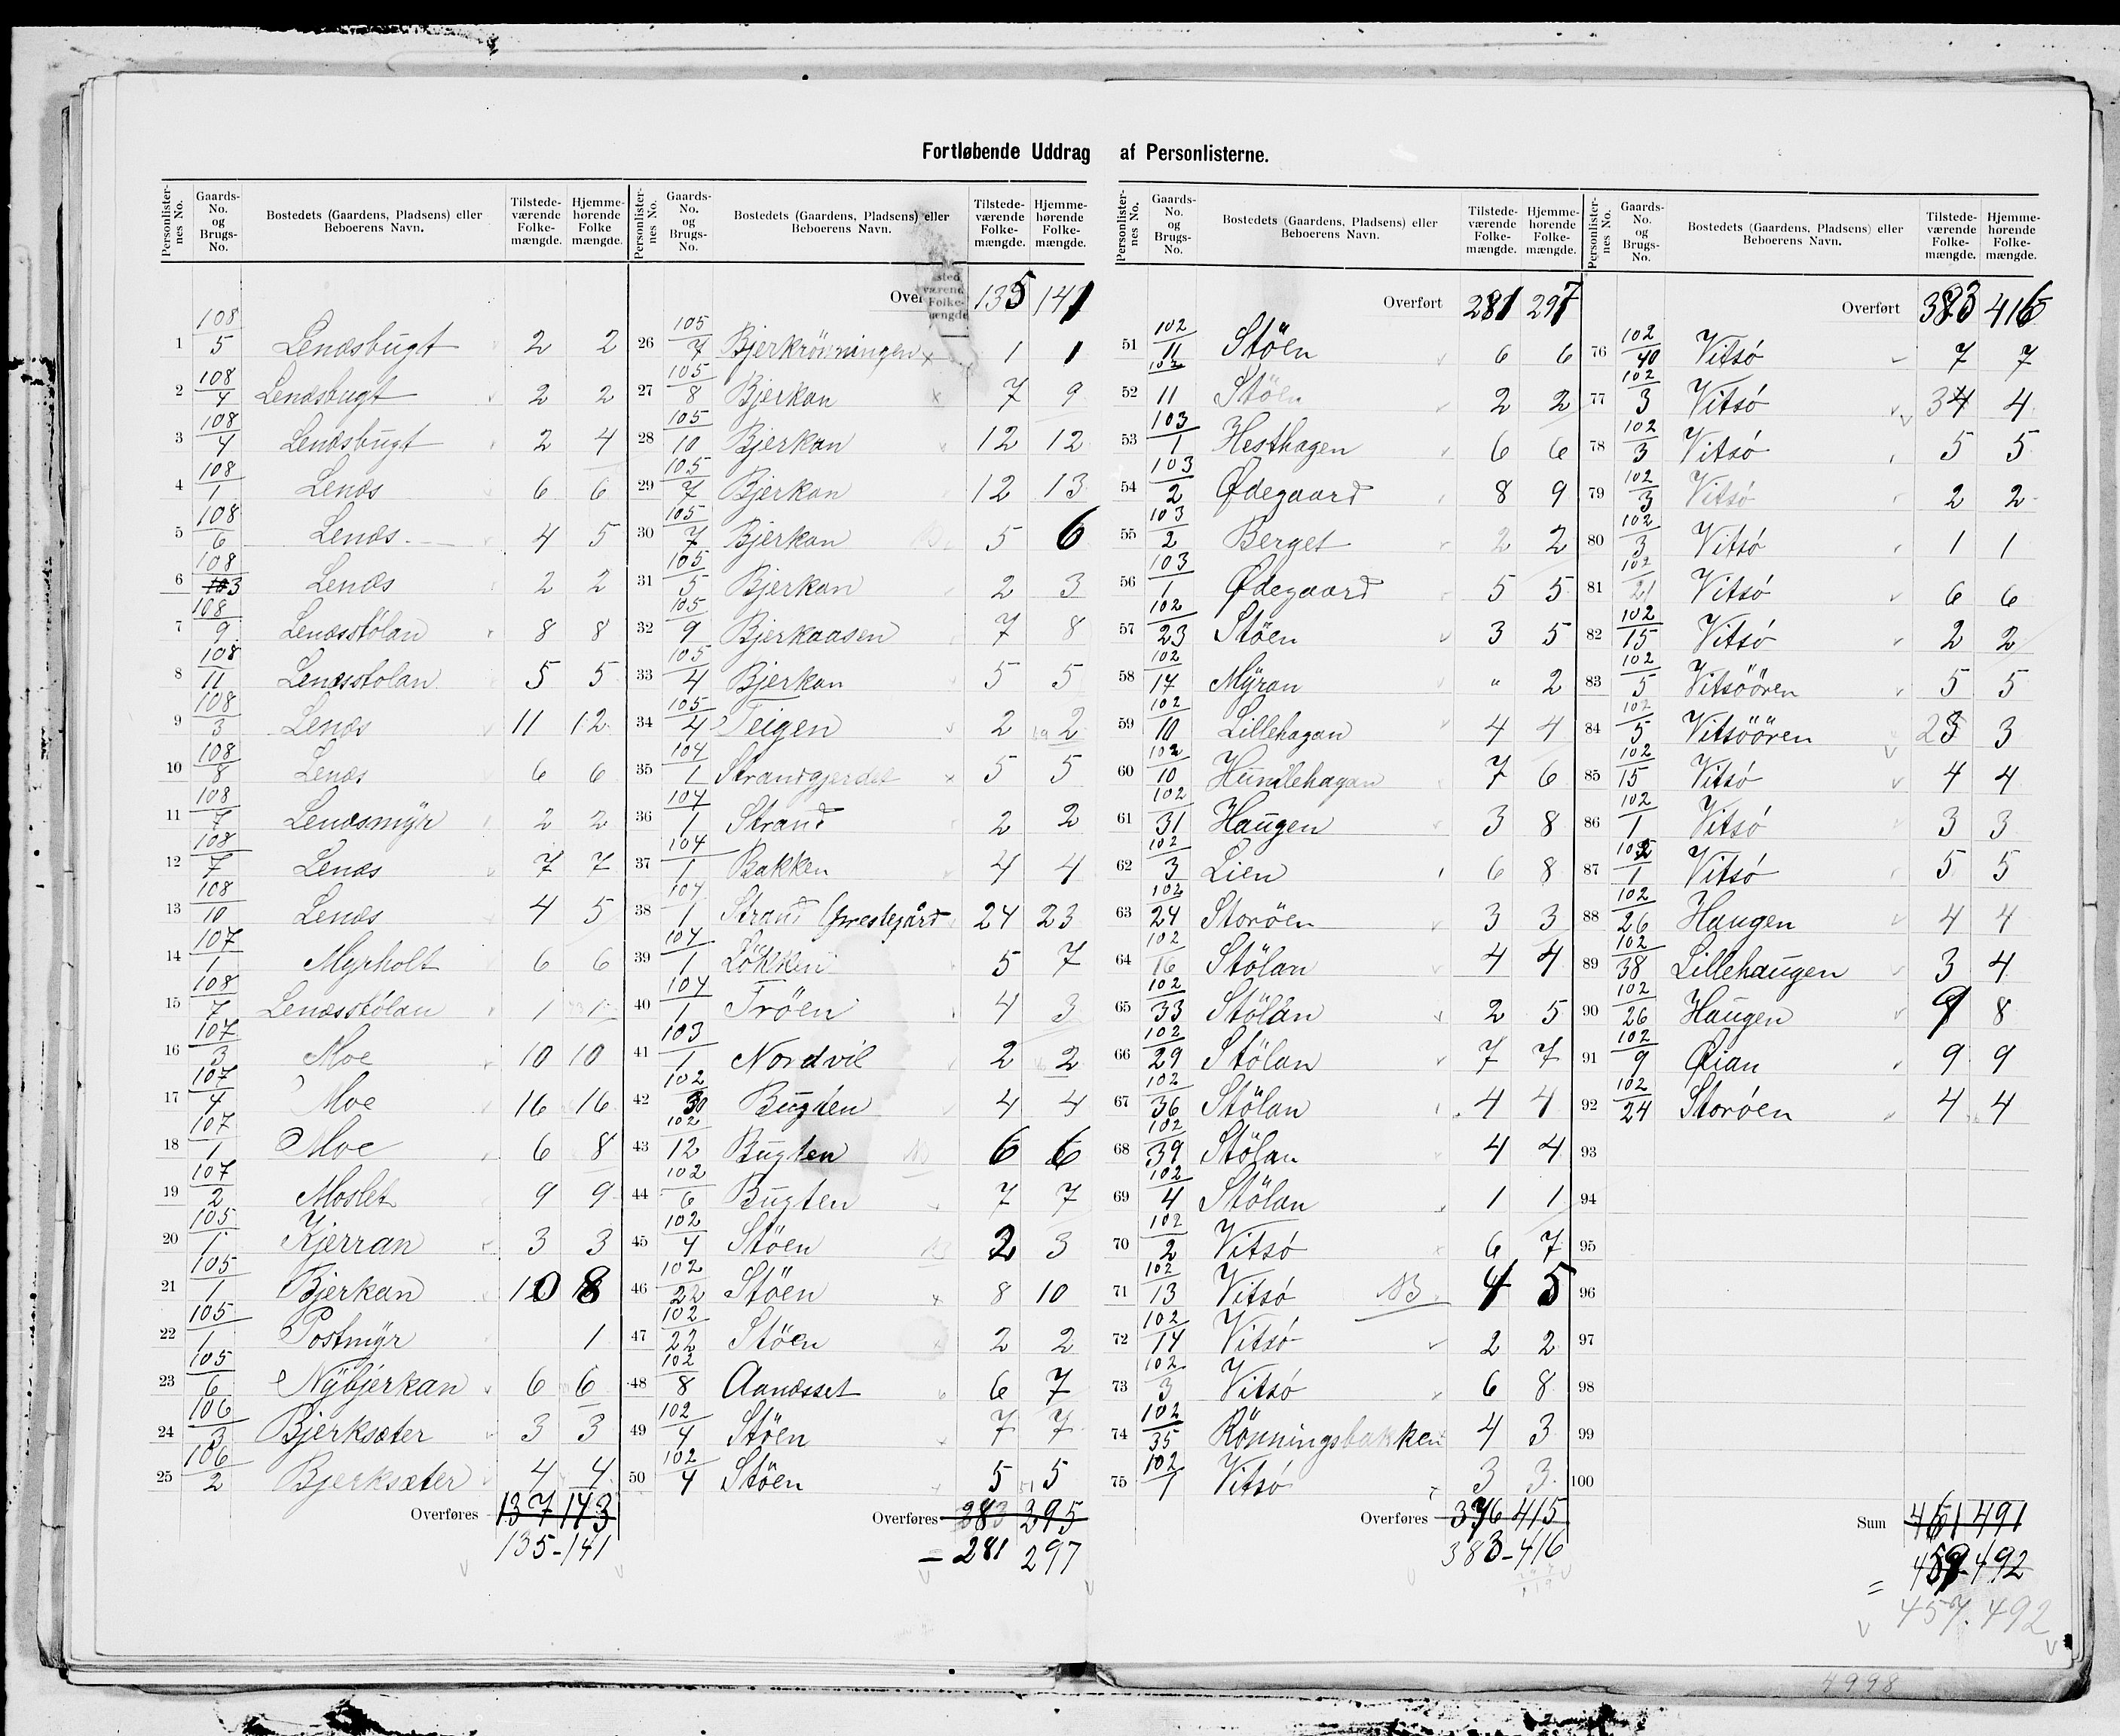 Fortløbende Uddrag af Personlisterne.
Personlister-nes No. Gaards-No. og Brugs-No. Bostedets (Gaardens, Pladsens) eller Beboerens Navn. Tilstede-værende Folke-mængde. Hjemme-hørende Folke mængde.
1 108/5 Lenæsbugt 2 2
2 108/4 Lenæsbugt 2 2
3 108/4 Lenæsbugt 2 4
4 108/1 Lenæs 6 6
5 108/6 Lenæs 4 5
6 108/3 Lenæs 2 2
7 108/9 Lenæsstölan 8 8
8 108/11 Lenæsstolan 5 5
9 108/3 Lenæs 11 12
10 108/8 Lenæs 6 6
11 108/7 Lenæsmÿr 2 2
12 108/7 Lenæs 7 7
13 108/10 Lenæs 4 5
14 107/1 Myrholt 6 6
15 108/7 Lenæsstölan 1 1
16 107/3 Moe 10 10
17 107/4 Moe 16 16
18 107/1 Moe 6 8
19 107/2 Moslet 9 9
20 105/1 Kjerran 3 3
21 105/1 Bjerkan 10 8
22 105/1 Postmÿr 1
23 105/6 Nÿbjerkan 6 6
24 106/3 Bjerksæter 3 3
25 106/2 Bjerksæter 4 4
Overføres 137 143
135-141
Personlister-nes No. Gaards-No. og Brugs-No. Bostedets (Gaardens, Pladsens) eller Beboerens Navn. Tilstede-værende Folke-mængde. Hjemme-hørende Folke-mængde.
135 141
26 105/7 Bjerkrönningen x 1 1
27 105/8 Bjerkan x 7 9
28 105/10 Bjerkan 12 12
29 105/7 Bjerkan 12 13
30 105/7 Bjerkan 5 6
31 105/5 Bjerkan 2 3
32 105/9 Bjerkaasen 7 8
33 105/4 Bjerkan 5 5
34 105/4 Teigen 2 2
35 104/1 Strandgjerdet x 5 5
36 104/1 Strand 2 2
37 104/1 Bakken 4 4
38 104/1 Strand 24 23
39 104/1 Lökken 5 7
40 104/1 Tröen 4 3
41 103/1 Nordvik 2 2
42 102/30 Bugten 4 4
43 102/12 Bugten 6 6
44 102/6 Bugten 7 7
45 102/4 Stöen 2 3
46 102/22 Stöen x 8 10
47 102/22 Stöen 2 2
48 102/8 Aanæsset 6 7
49 102/4 Stöen 7 7
50 102/4 Stöen 5 5
Overføres 283 295
= 281 297
Personlister-nes No. Gaards-No. og Brugs-No. Bostedets (Gaardens, Pladsens) eller Beboerens Navn. Tilstede-værende Folke-mængde. Hjemme-hørende Folke-mængde.
Overført 281 297
51 102/11 Stöen 6 6
52 102/11 Stöen 2 2
53 103/1 Hesthagen 6 6
54 103/2 Ødegaard 8 9
55 103/2 Berget 2 2
56 103/1 Ødegaard 5 5
57 102/23 Stöen 3 5
58 102/17 Mÿran " 2
59 102/10 Lillehagan 4 4
60 102/10 Hundlehagan 7 6
61 102/31 Haugen 3 8
62 102/3 Lien 6 8
63 102/24 Storöen 3 3
64 102/16 Stölan 4 4
65 102/33 Stölan 2 5
66 102/29 Stölan 7 7
67 102/36 Stölan 4 4
68 102/39 Stölan 4 4
69 102/4 Stölan 1 1
70 102/2 Vitsö 6 7
71 102/13 Vitsö NB 4 5
72 102/14 Vitsö 2 2
73 102/3 Vitsö 6 8
74 102/35 Rönningsbakken 4 3
75 102/1 Vitsö 3 3
Overføres 376 415
383-416
Personlister-nes No. Gaards-No. og Brugs-No. Bostedets (Gaardens, Pladsens) eller Beboerens Navn. Tilstede-værende Folke-mængde. Hjemme-hørende Folke-mængde.
Overført 383 416
76 102/40 Vitsö 7 7
77 102/3 Vitsö 3 4 4
78 102/3 Vitsö 5 5
79 102/3 Vitsö 2 2
80 102/3 Vitsö 1 1
81 102/21 Vitsö 6 6
82 102/15 Vitsö 2 2
83 102/5 Vitsöören 5 5
84 102/5 Vitsöören 2 3 3
85 102/15 Vitsö 4 4
86 102/1 Vitsö 3 3
87 102/1 Vitsö 5 5
88 102/26 Haugen 4 4
89 102/38 Lillehaugen 3 4
90 102/26 Haugen 8
91 102/9 Øian 9 9
92 102/24 Storöen 4 4
93
94
95
96
97
98
99
100
Sum 461 491
= 459-492
457. 492
4998